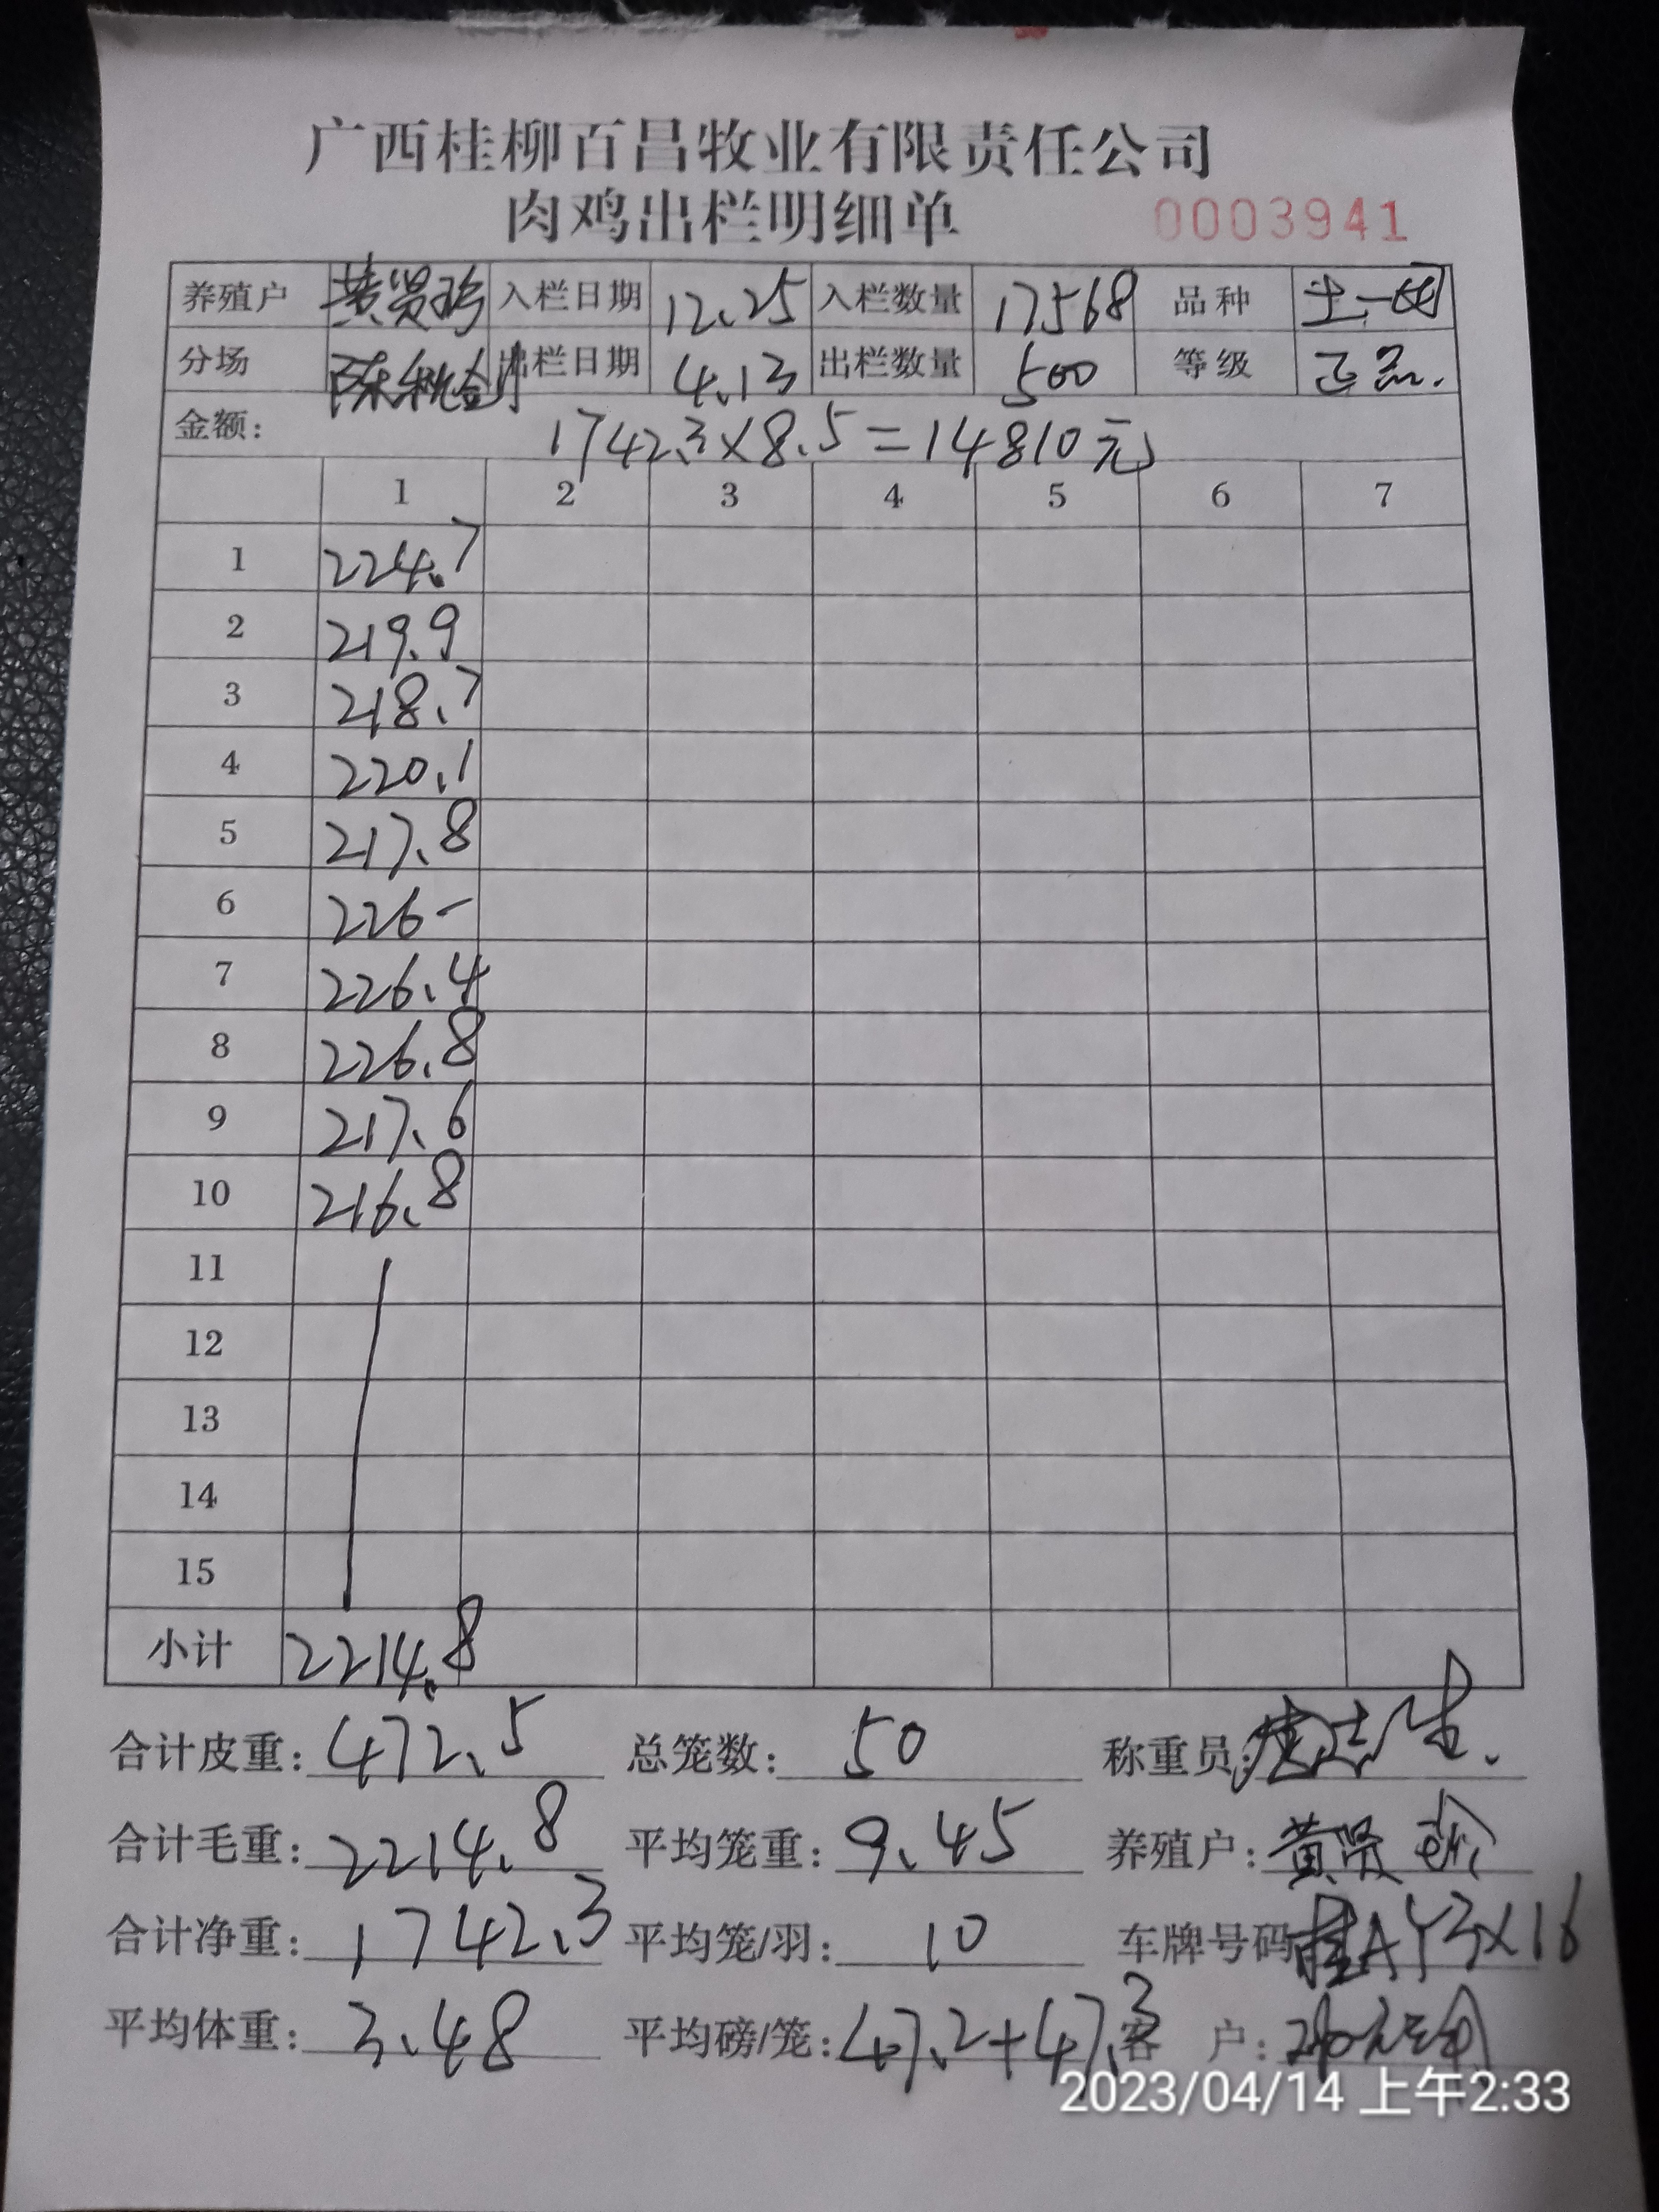 广西桂柳百昌牧业有限责任公司
肉鸡出栏明细单 0003941
养殖户 黄贤珍 入栏日期 12.25 入栏数量 17568 品种 土一
分场 陈 出栏日期 4.13 出栏数量 500 等级 正品.
金额: 1742.3×8.5=14810元
1 2 3 4 5 6 7
1 224.7
2 219.9
3 218.7
4 220.1
5 217.8
6 226-
7 226.4
8 226.8
9 217.6
10 216.8
11
12
13
14
15
小计 2214.8
合计皮重: 472.5 总笼数: 50 称重员:
合计毛重: 2214.8 平均笼重: 9.45 养殖户: 黄贤珍
合计净重: 1742.3 平均笼/羽: 10 车牌号码 桂AY3X16
平均体重: 3.48 平均磅/笼: 47.2+47.3 客 户:
2023/04/14 上午2:33